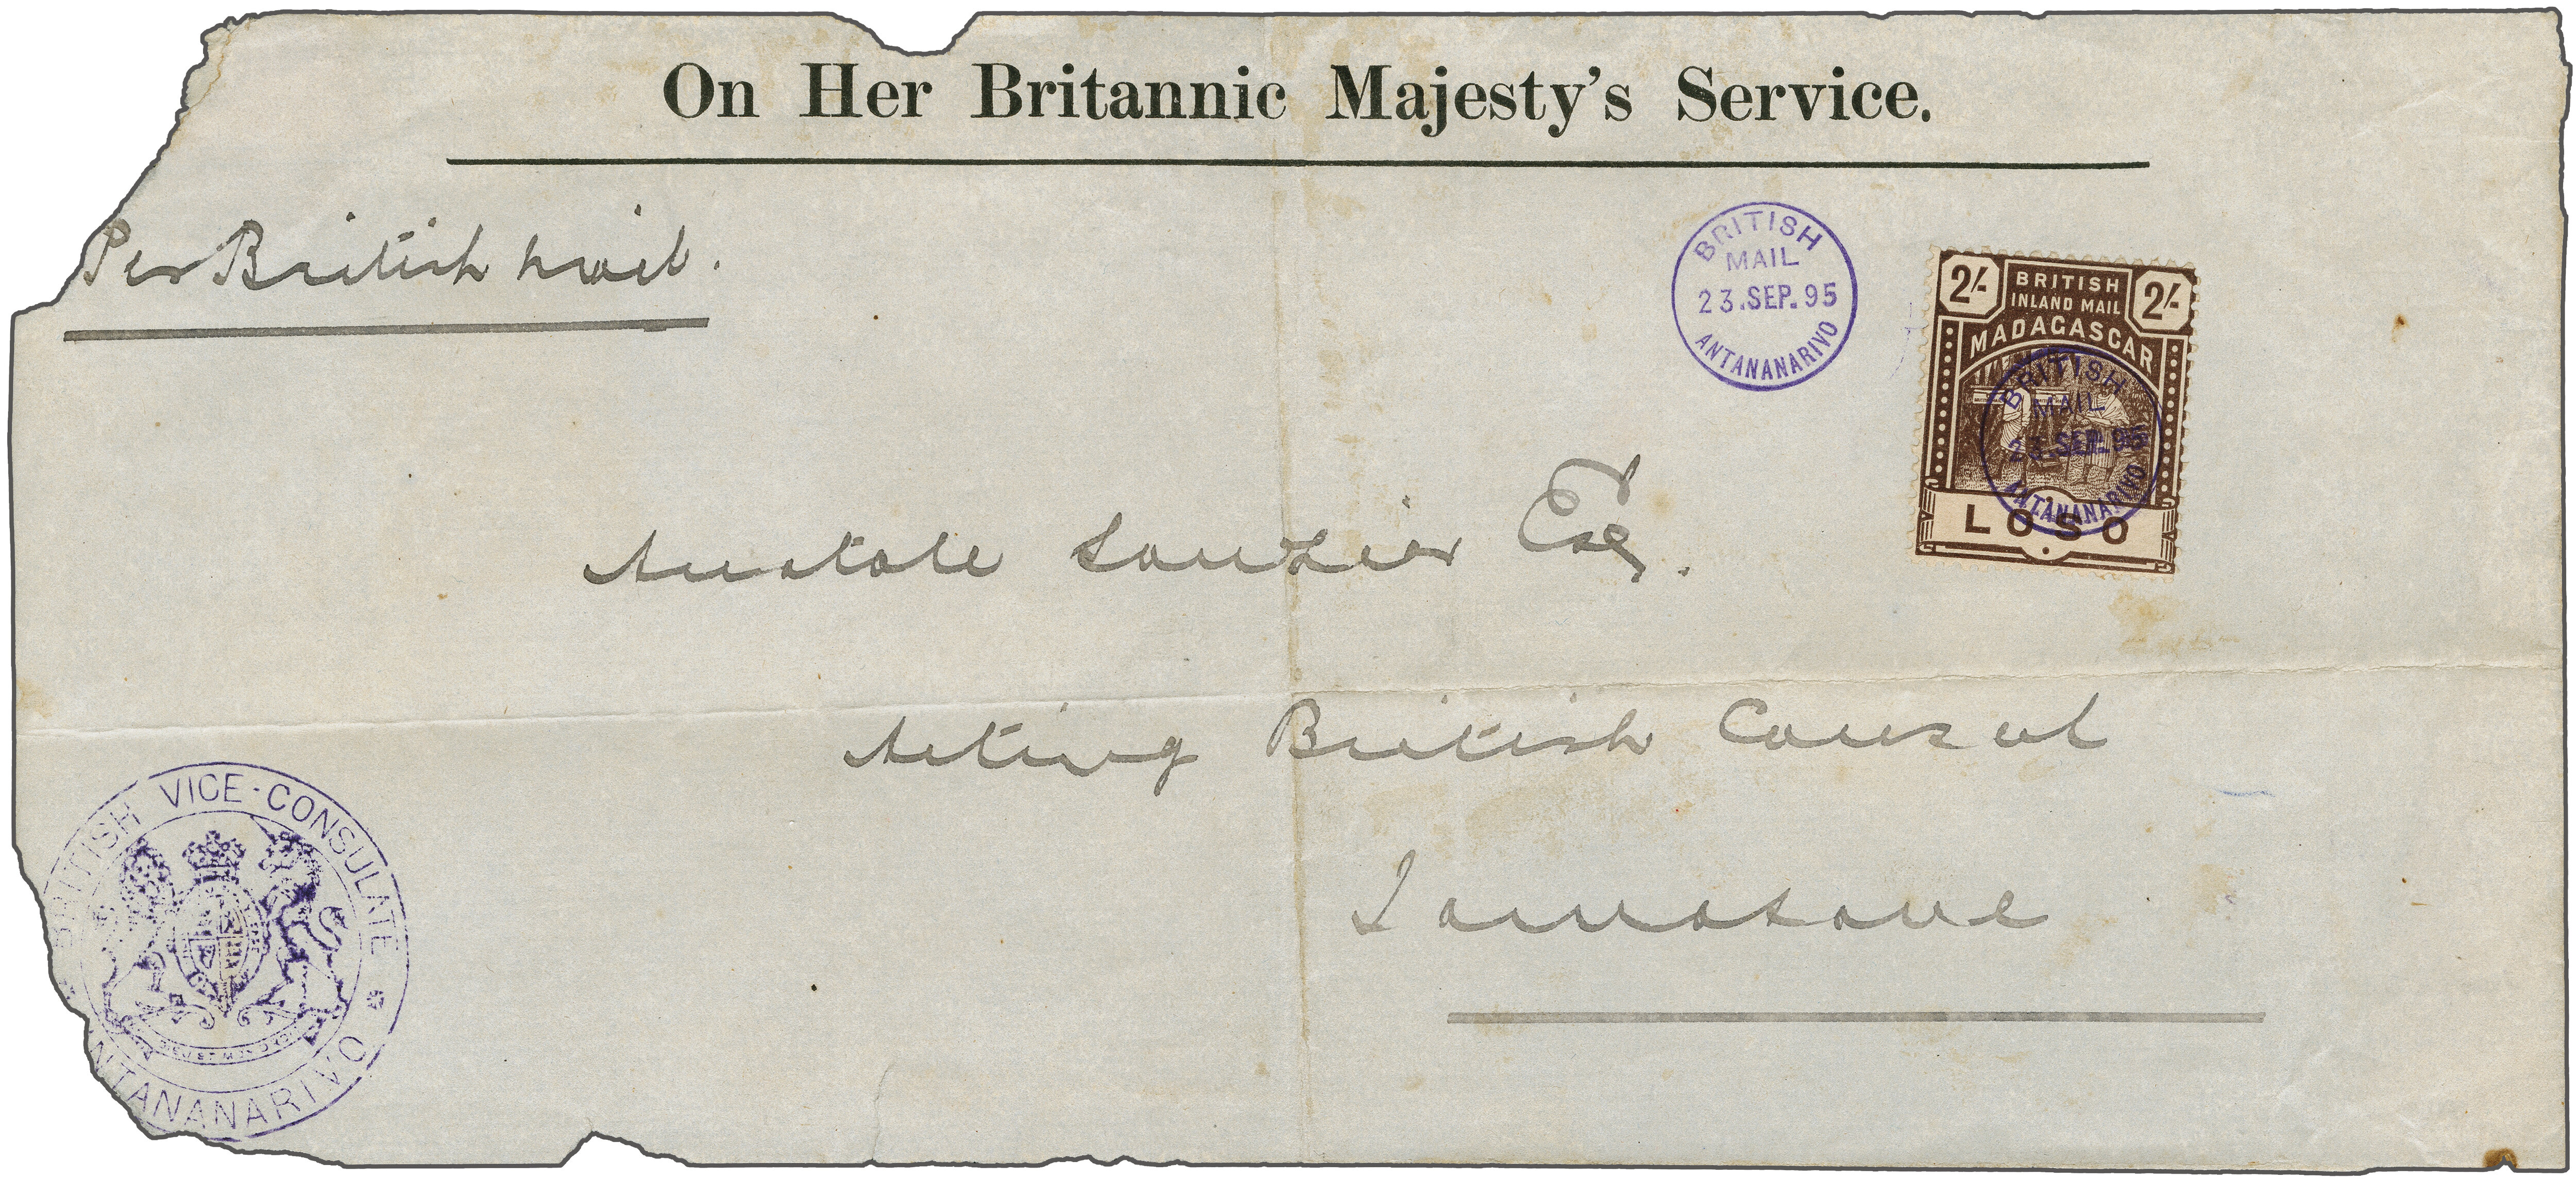 On Her Britannic Majesty's Service.
Per British mail.
BRITISH
MAIL
23.SEP.95
ANTANANARIVO
2/- BRITISH 2/-
INLAND MAIL
MADAGASCAR
BRITISH
MAIL
23.SEP.95
ANTANANARIVO
LOSO
Anatole Sauzier Esq.
Acting British Consul
Tamatave
BRITISH VICE-CONSULATE
NTANANARIVO